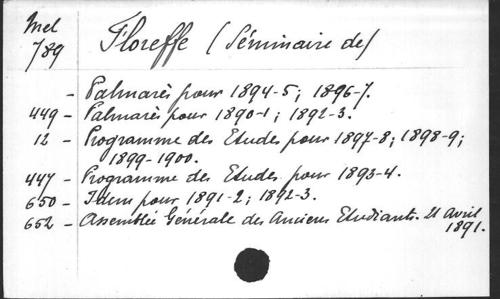 Mel
789
Floreffe (Séminaire de)
- Palmarès pour 1894-5; 1896-7.
449 - Palmarès pour 1890-1; 1892-3.
12 - Programme des Etudes pour 1897-8; 1898-9;
1899-1900.
447 - Programme des Etudes pour 1893-4.
650 - Idem pour 1891-2; 1892-3.
652 - Assemblée Générale des Anciens Etudiants. 21 Avril
1891.